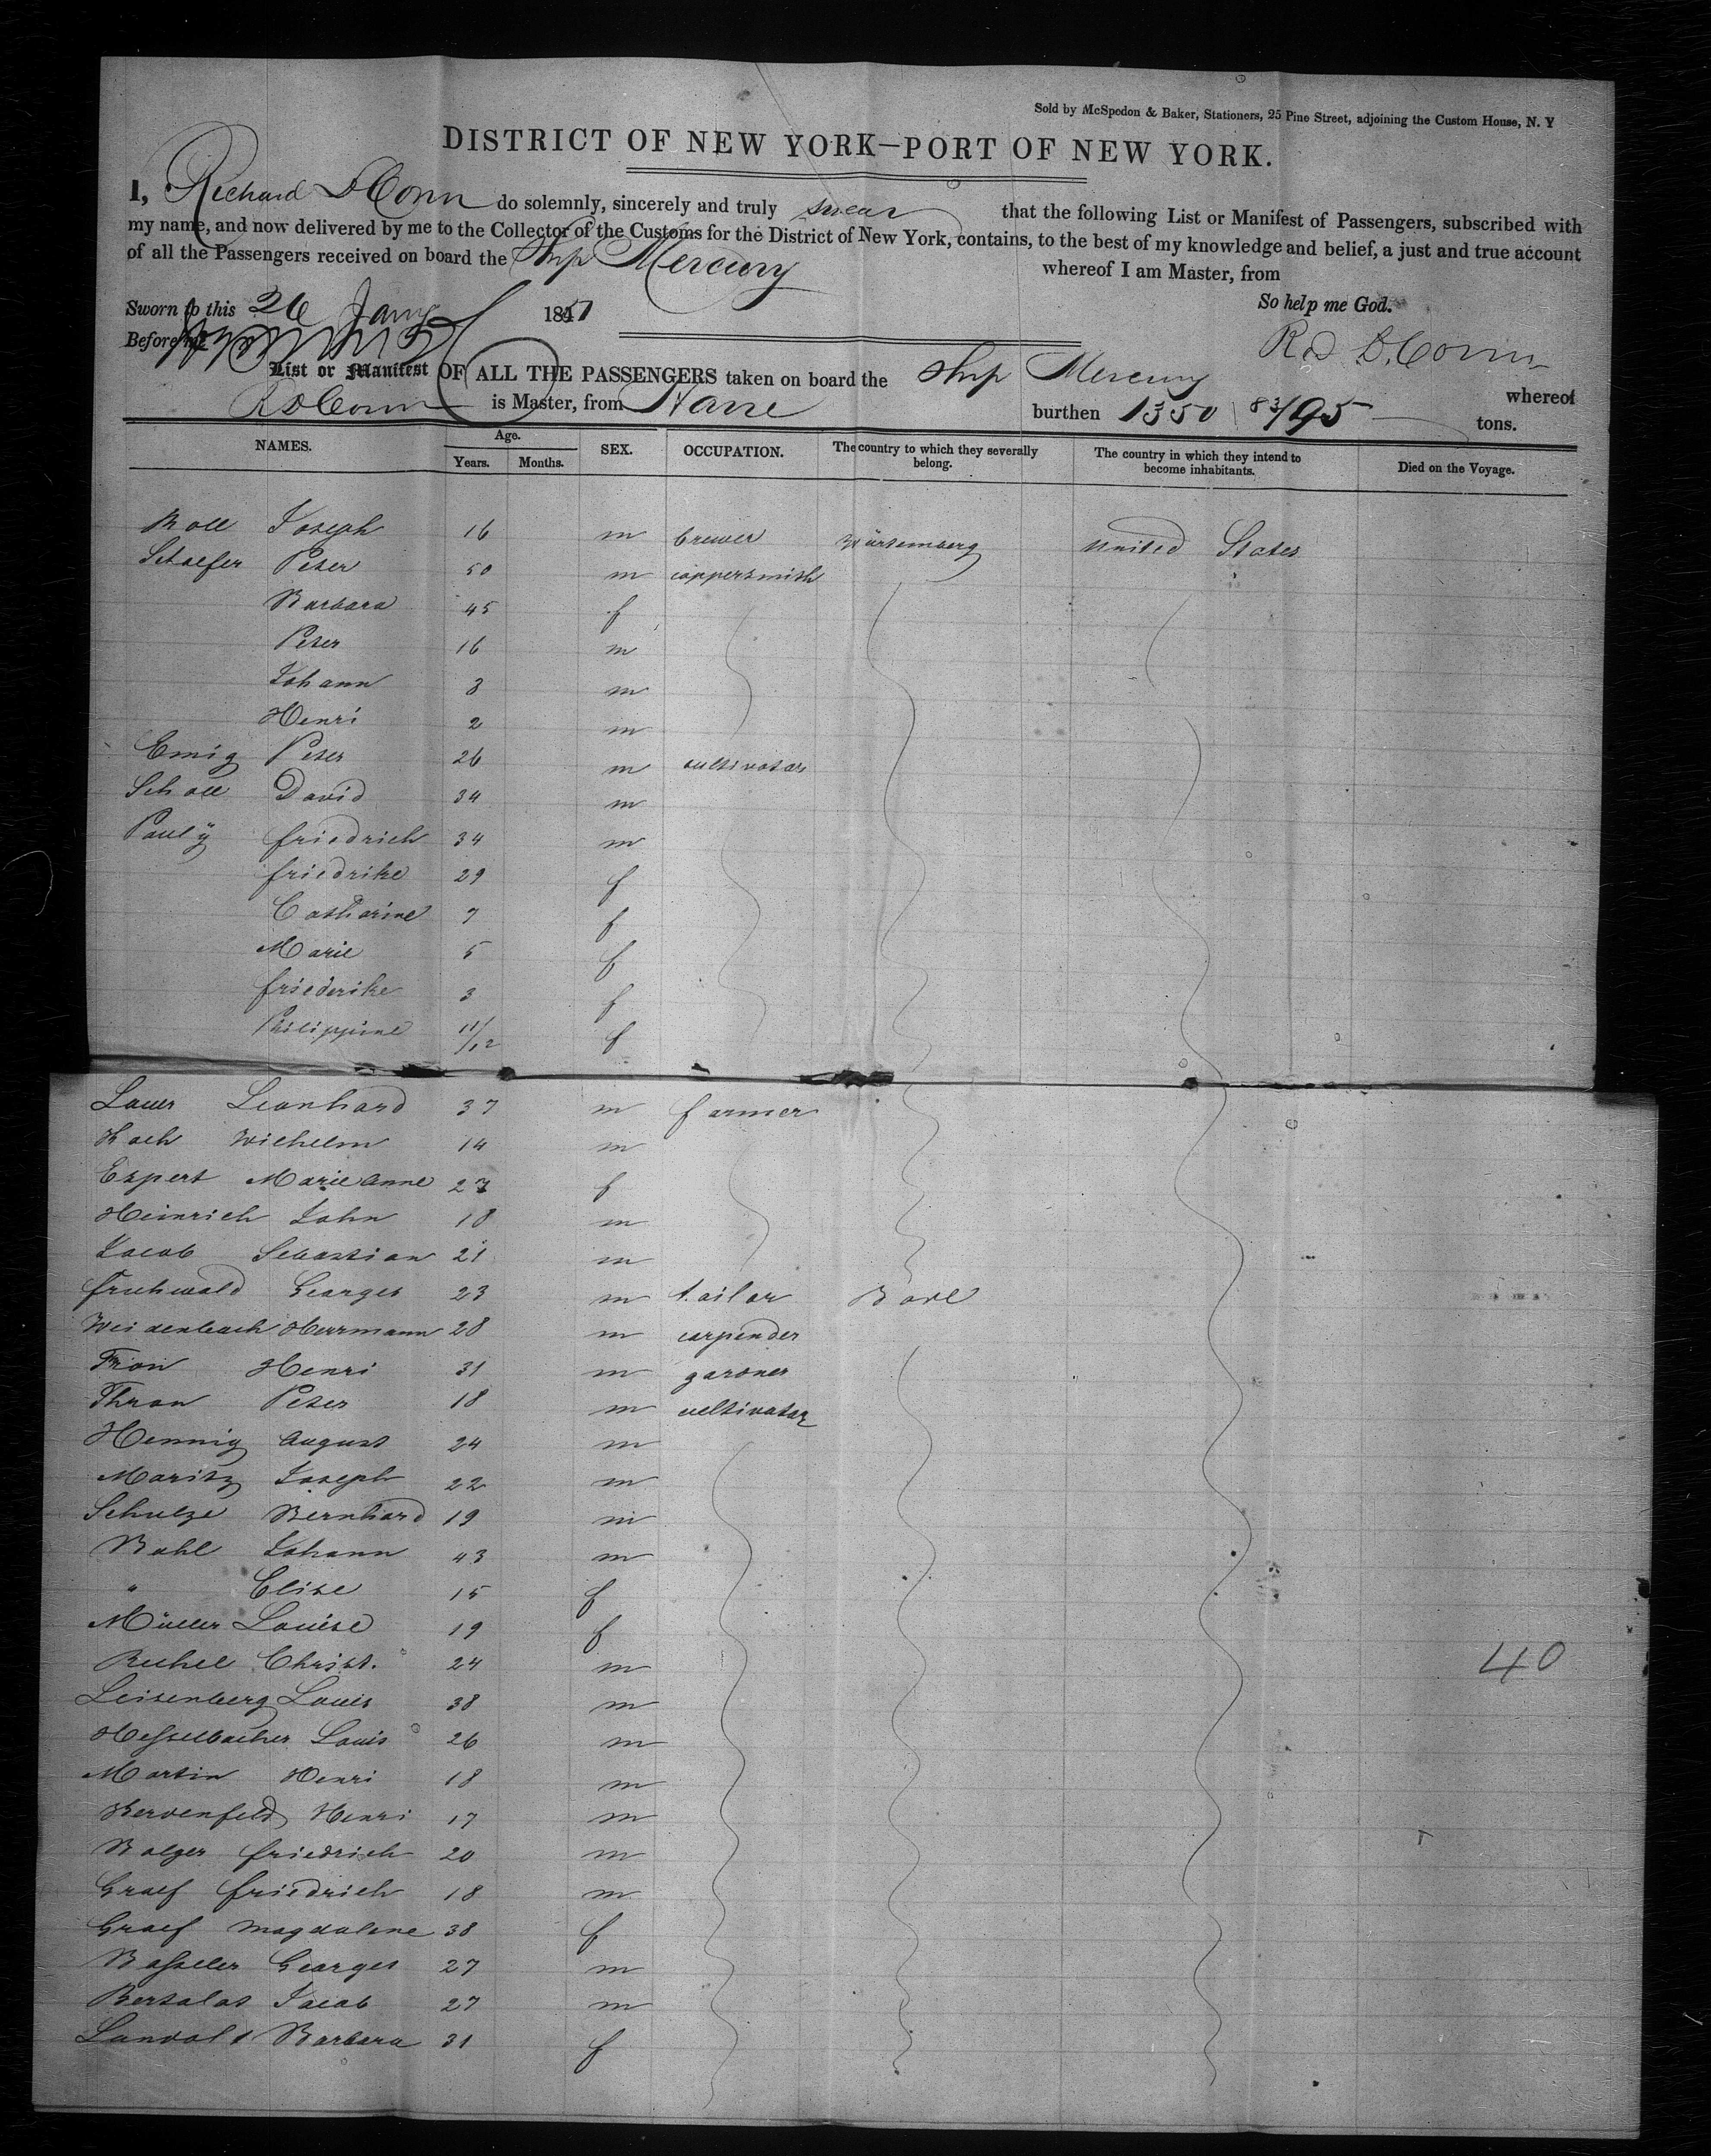 Sold by McSpedon & Baker, Stationers, 25 Pine Street, adjoining the Custom House, N. Y
DISTRICT OF NEW YORK—PORT OF NEW YORK.
I, Richard D Conn do solemnly, sincerely and truly swear that the following List or Manifest of Passengers, subscribed with
my name, and now delivered by me to the Collector of the Customs for the District of New York, contains, to the best of my knowledge and belief, a just and true account
of all the Passengers received on board the Ship Mercury whereof I am Master, from
So help me God.
Sworn to this 26 Jany 1857
Before me
List or Manifest OF ALL THE PASSENGERS taken on board the Ship Mercury whereof
R D Conn is Master, from Havre burthen 1350 83/95 tons.
NAMES. Age. Years. Months. SEX. OCCUPATION. The country to which they severally belong. The country in which they intend to become inhabitants. Died on the Voyage.
Joseph 16 m brewer Würtemberg United States
Schaefer Peter 50 m coppersmith
Barbara 45 f
Peter 16 m
Johann 3 m
Henri 2 m
Emig Peter 26 m cultivator
Scholl David 34 m
Pauly friedrich 34 m
friedrike 29 f
Catharine 7 f
Marie 5 f
friederike 3 f
Philippine 11/12 f
Lauer Leonhard 37 m farmer
Koch Wilhelm 14 m
Espert Marie Anne 27 f
Heinrich John 18 m
Jacob Sebastian 21 m
fruhwald Georges 23 m tailor
Weidenbach Herrmann 28 m carpender
Henri 31 m gardner
Thron Peter 18 m cultivator
Hennig August 24 m
Moritz Joseph 22 m
Schulze Bernhard 19 m
Bohl Johann 43 m
" Elise 15 f
Müller Louise 19 f
Christ. 24 m
40
Leisenberg Louis 38 m
Hesselbacher Louis 26 m
Martin Henri 18 m
Henri 17 m
Bolger friedrich 20 m
Graef friedrich 18 m
Graef Magdalene 38 f
Bassler Georges 27 m
Jacob 27 m
Barbara 31 f